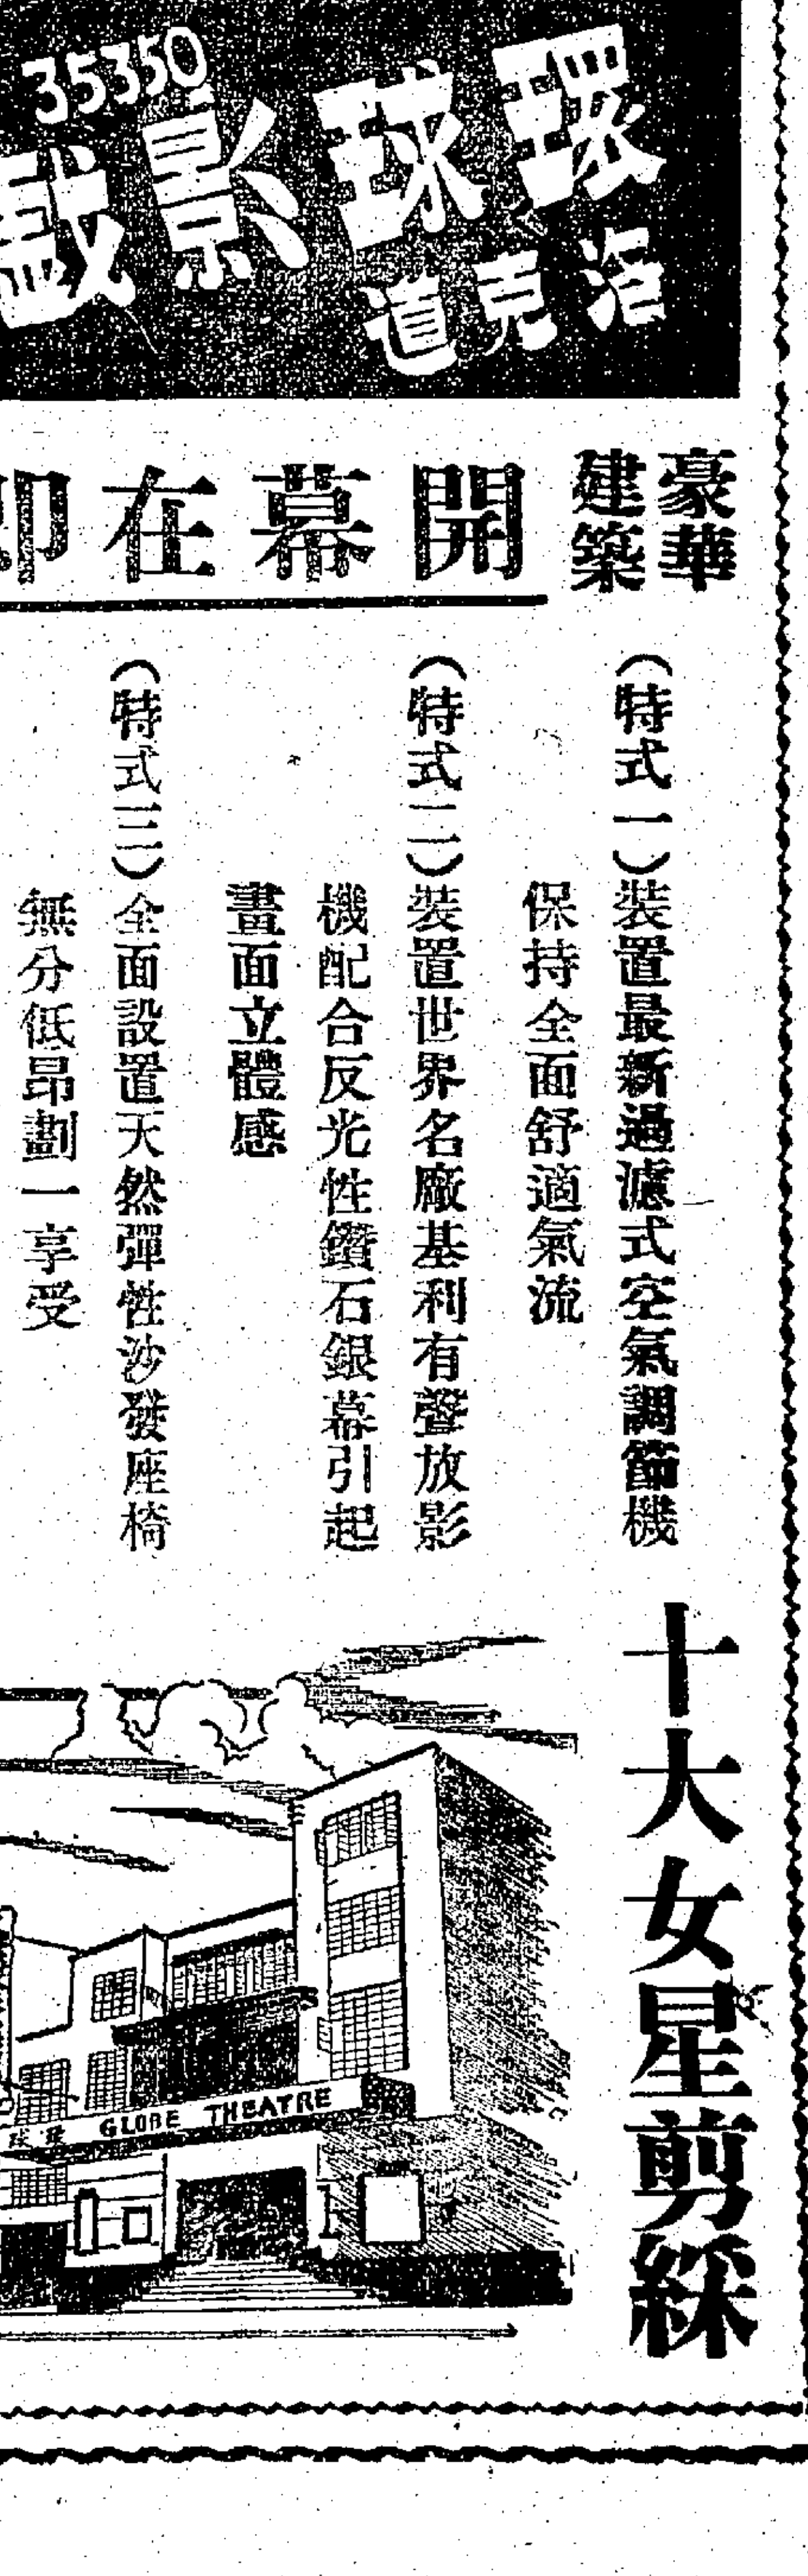 35350
環球影戲
洛克道
豪華
建築
開幕在即
(特式一)裝置最新過濾式空氣調節機
保持全面舒適氣流
(特式二)裝置世界名廠基利有聲放影
機配合反光性鑽石銀幕引起
畫面立體感
(特式三)全面設置天然彈性沙發座椅
無分低昂劃一享受
十大女星剪綵
GLOBE THEATRE
環球